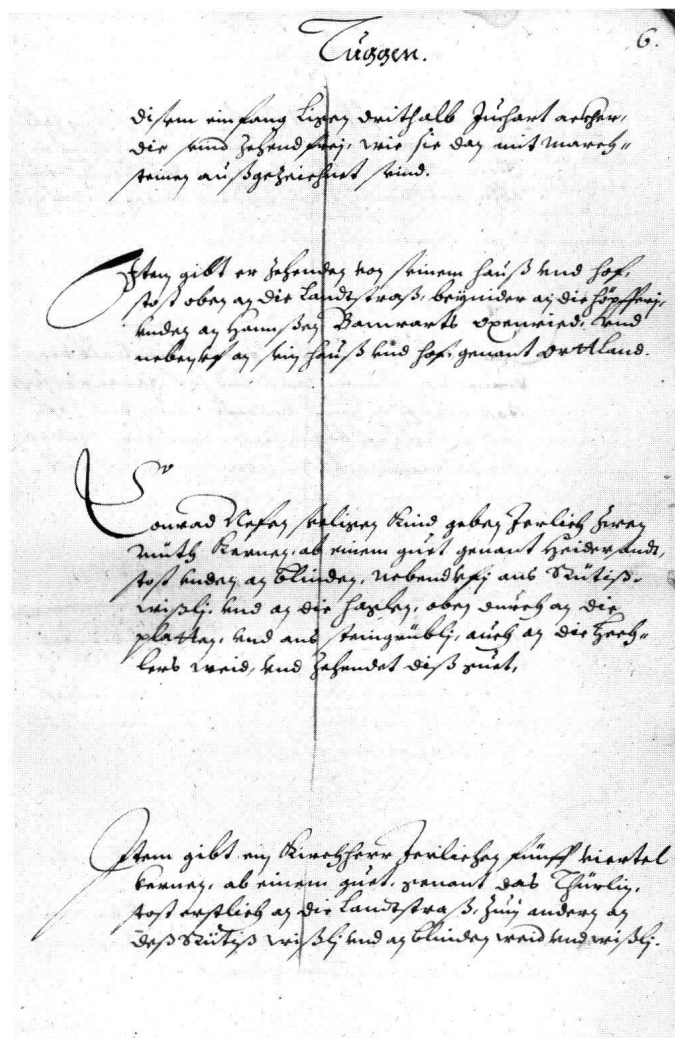 Tuggen.
6.
disem einfang ligen drithalb Juchart ackher,
die sind zehendfrej, wie sie dan mit march-
steinen außgezeichnet sind.
Item gibt er zehenden von seinem hauß vnd hof,
stost oben an die Landtstraß, beynider an die höpfferj,
vnden an Hannßen Banwarts oxenried, vnd
nebenvf an sin hauß vnd hof, genant Orttland.
Conrad Nefen seligen Kind geben Jerlich zwen
mütth Kernen, ab einem guet genant Heidersandt,
stost vnden an blinden, nebendvfj ans Rütiß
wißlj, vnd an die haslen, oben durch an die
platten, vnd ans steingrüblj, auch an die Hech-
lers weid, vnd zehendet diß guet,
Item gibt ein Kirchherr Jerlichen fünff viertel
kernen, ab einem guet, genant das Thürlin,
stost erstlich an die Landtstraß, zum andern an
deß Rütiß wißlj vnd an blinden weid vnd wißlj.